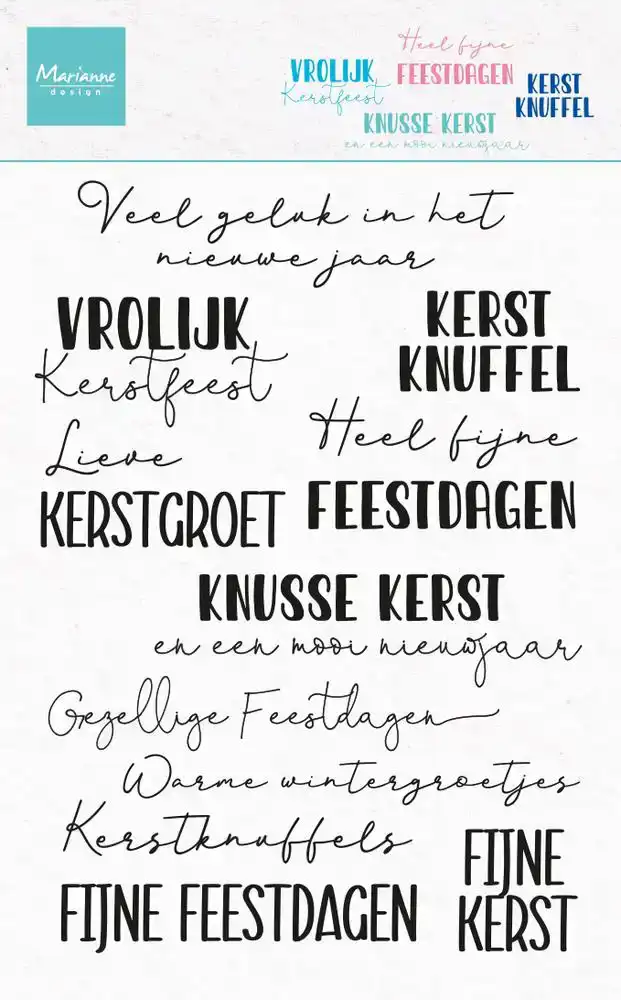 Marianne
design
Heel fijne
VROLIJK
FEESTDAGEN
Kerstfeest
KERST
KNUFFEL
KNUSSE KERST
en een mooi nieuwjaar
Veel geluk in het
nieuwe jaar
VROLIJK
Kerstfeest
KERST
KNUFFEL
Lieve
KERSTGROET
Heel fijne
FEESTDAGEN
KNUSSE KERST
en een mooi nieuwjaar
Gezellige Feestdagen
Warme wintergroetjes
Kerstknuffels
FIJNE FEESTDAGEN
FIJNE
KERST